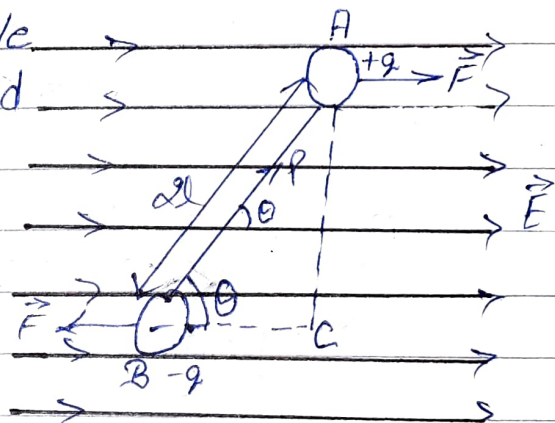 le
A
+q
F
d
2l
P
θ
E
θ
F
C
B -q